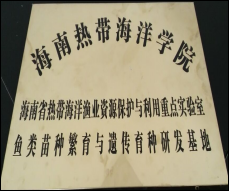 海南热带海洋学院
海南省热带海洋渔业资源保护与利用重点实验室
鱼类苗种繁育与遗传育种研发基地